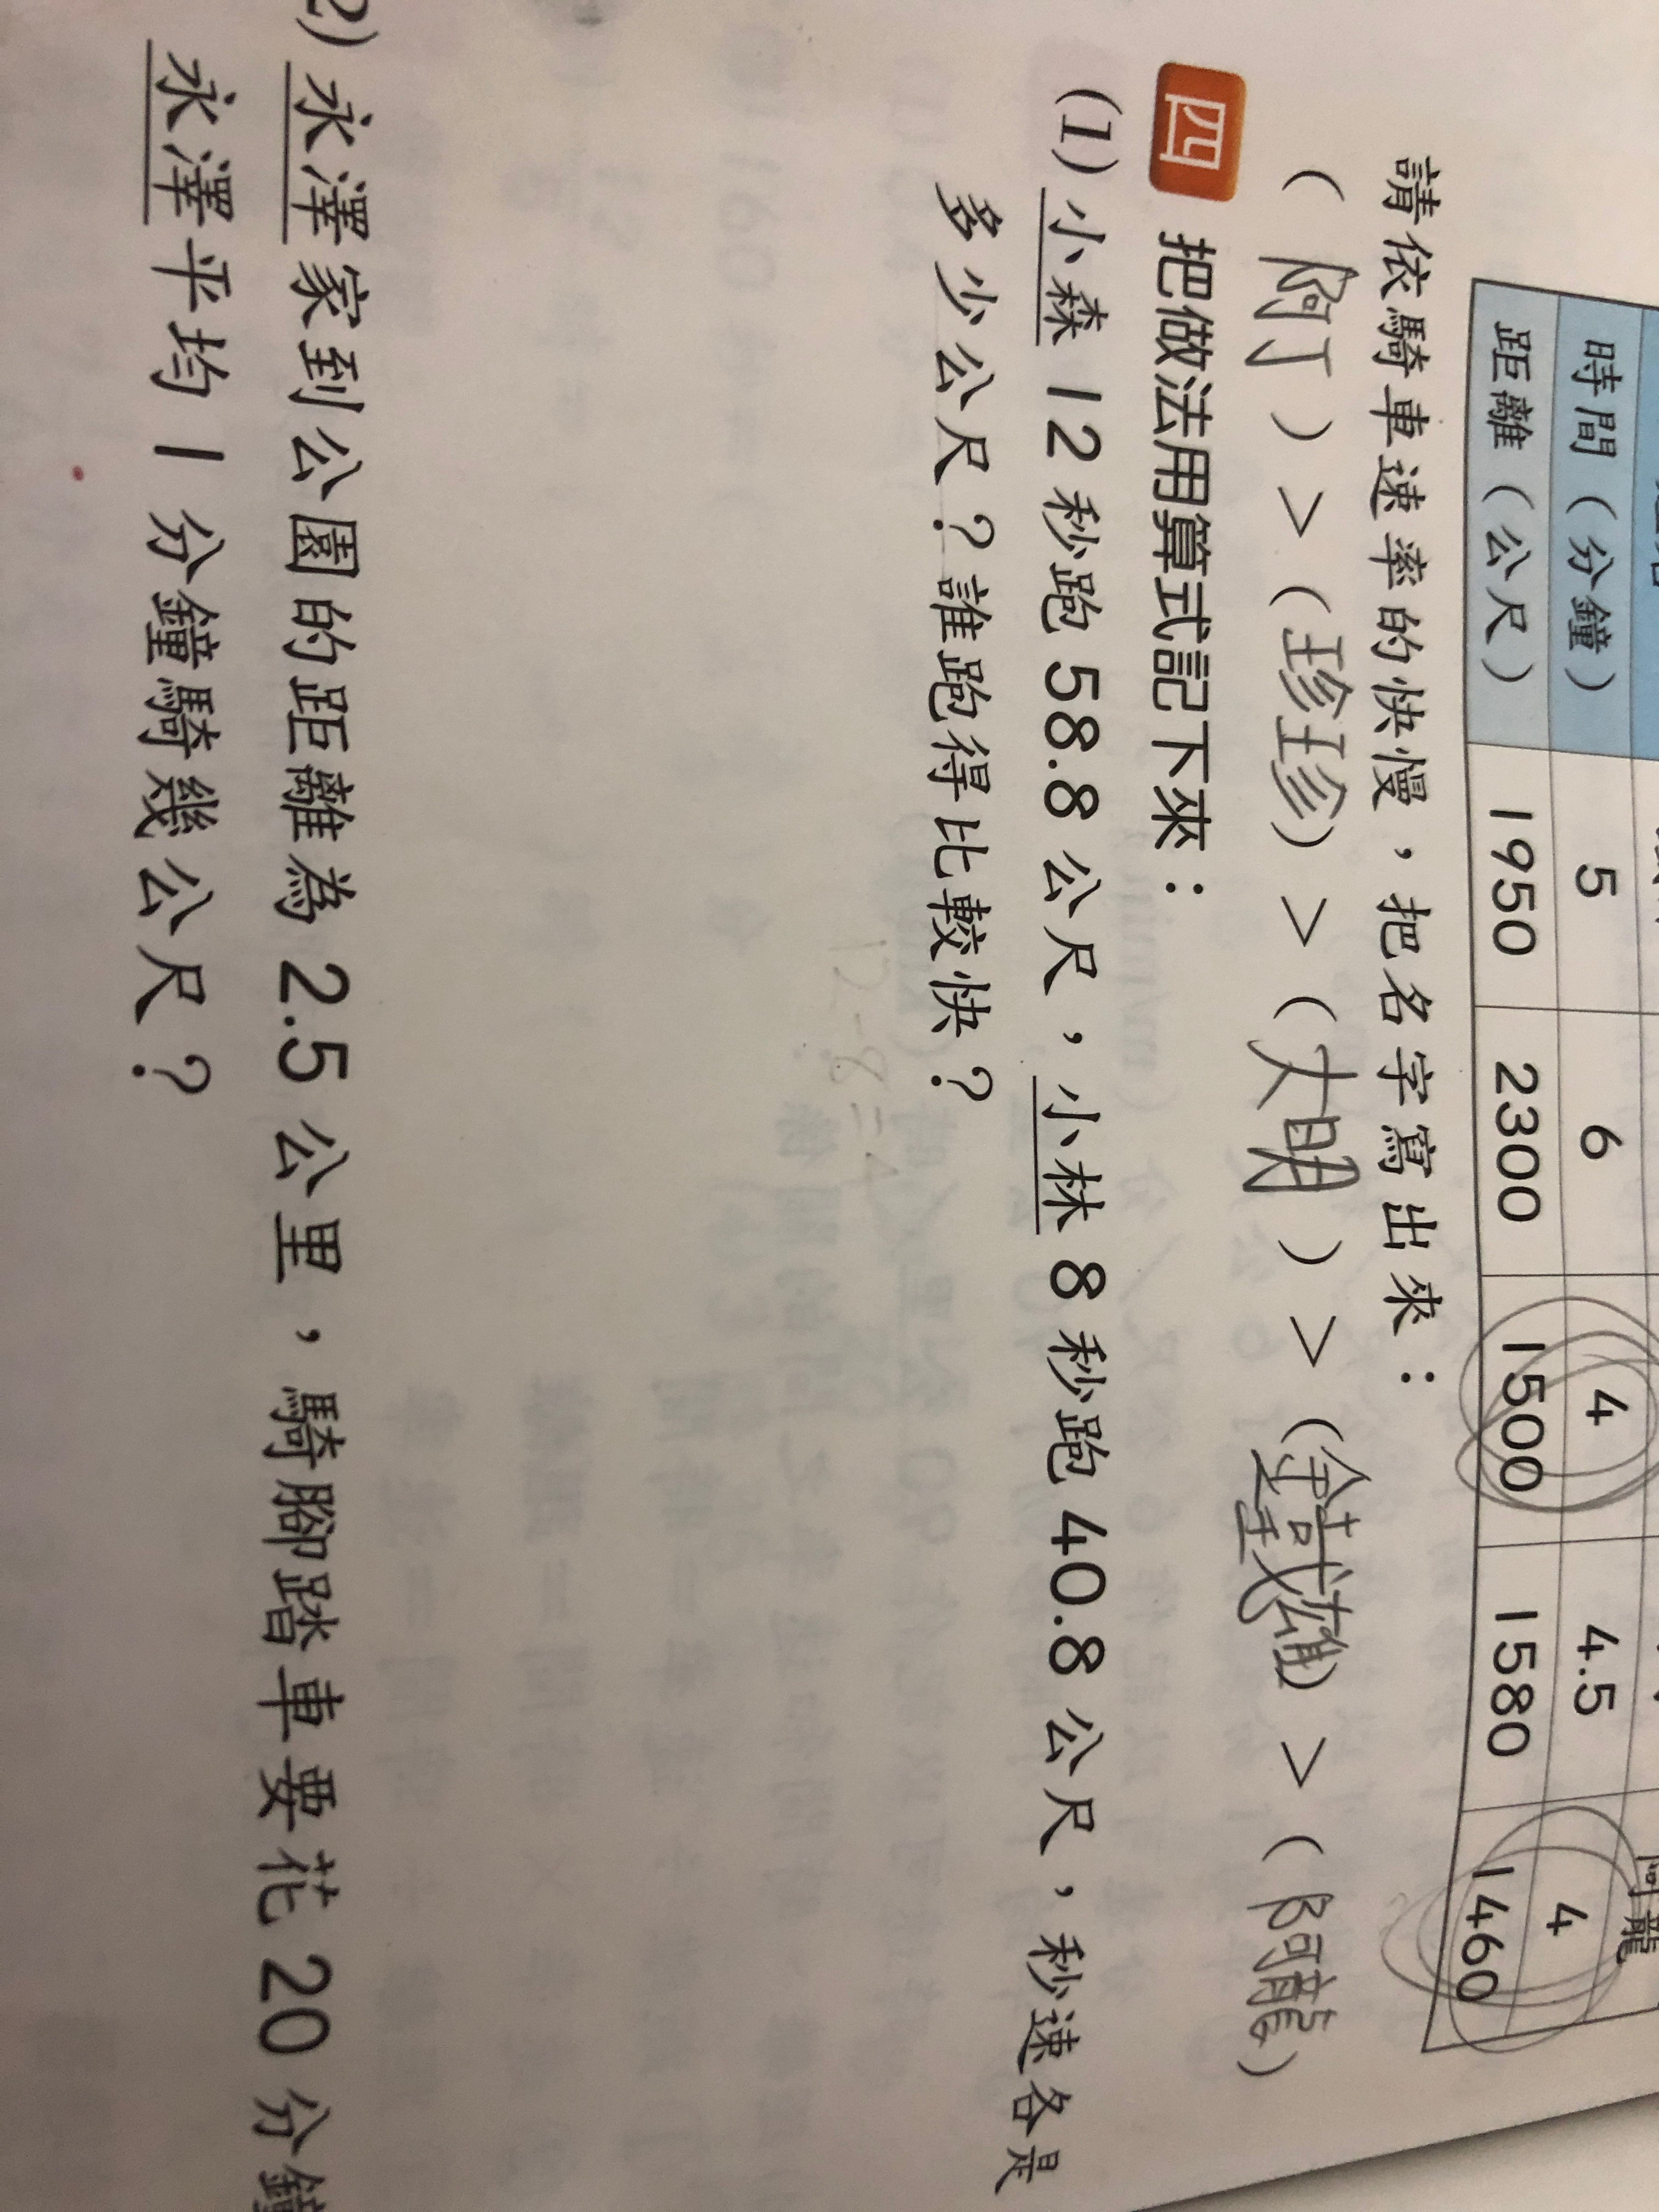 時間（分鐘） 5 6 4 4.5 4
距離（公尺） 1950 2300 1500 1580 1460
請依騎車速率的快慢，把名字寫出來：
（阿丁）>（珍珍）>（大明）>（　雄）>（阿龍）
四 把做法用算式記下來：
(1) 小森 12 秒跑 58.8 公尺，小林 8 秒跑 40.8 公尺，秒速各是
多少公尺？誰跑得比較快？
12-8=4
2) 永澤家到公園的距離為 2.5 公里，騎腳踏車要花 20 分鐘
永澤平均 1 分鐘騎幾公尺？